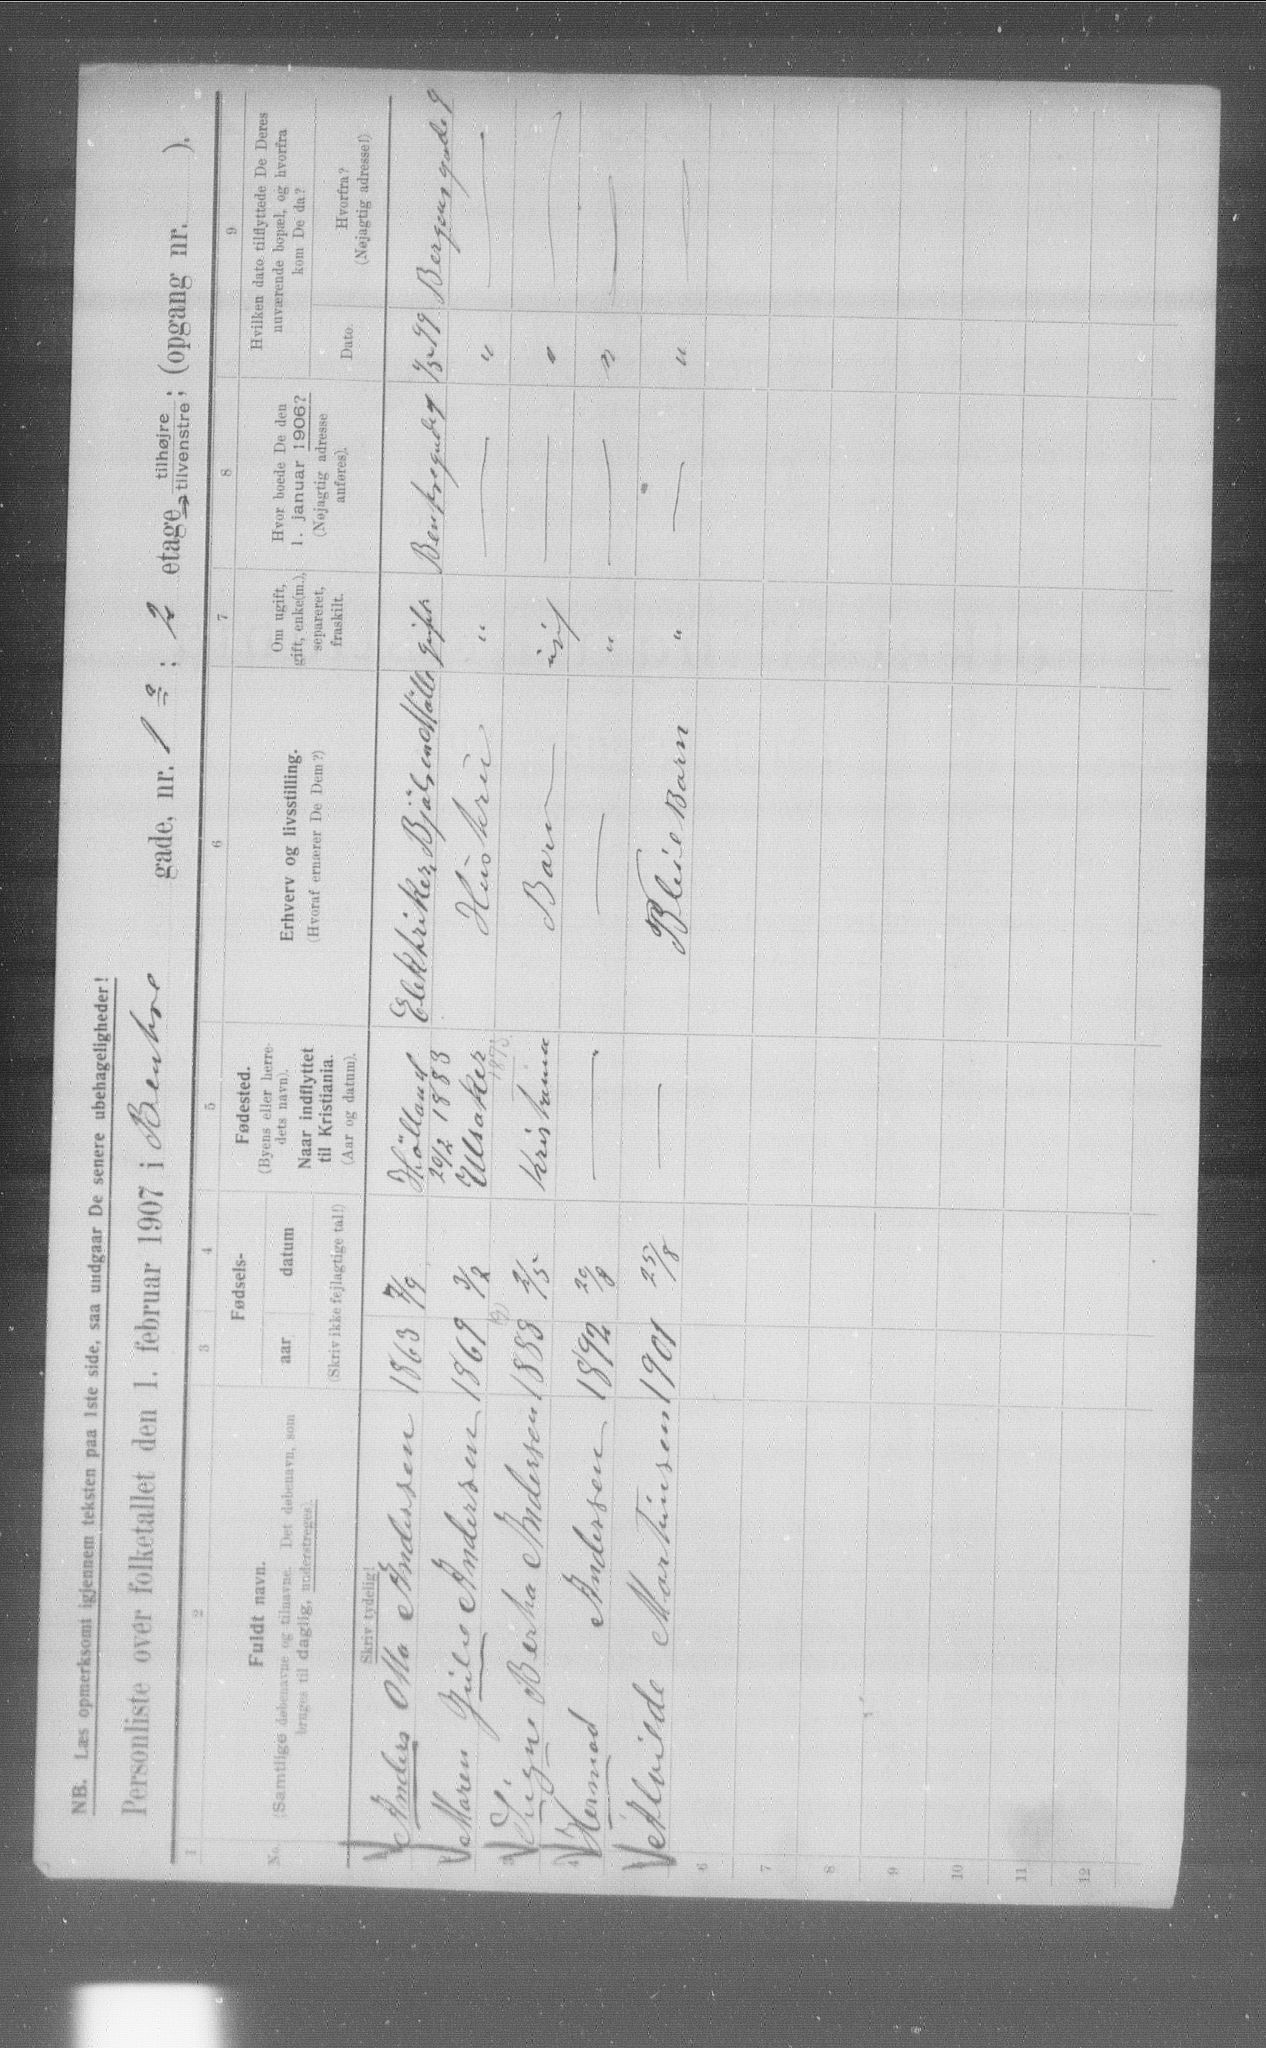 NB. Læs opmerksomt igjennem teksten paa 1ste side, saa undgaar De senere ubehageligheder!
Personliste over folketallet den 1. februar 1907 i Bentse gade, nr. 1 ; 2 etage tilhøjre tilvenstre; (opgang nr. ).
1 2 3 4 5 6 7 8 9
No. Fuldt navn. (Samtlige døbenavne og tilnavne. Det døbenavn, som bruges til daglig, understreges).
Fødsels- aar datum
(Skriv ikke fejlagtige tal!)
Fødested. (Byens eller herredets navn). Naar indflyttet til Kristiania. (Aar og datum).
Erhverv og livsstilling. (Hvoraf ernærer De Dem?)
Om ugift, gift, enke(m.), separeret, fraskilt.
Hvor boede De den 1. januar 1906? (Nøjagtig adresse anføres).
Hvilken dato tilflyttede De Deres nuværende bopæl, og hvorfra kom De da?
Dato. Hvorfra? (Nøjagtig adresse!)
Skriv tydelig!
Anders Otto Andersen 1863 7/9 Høland 29/2 1883 Elektriker gift
2 Maren Julie Andersen 1869 Ulsaker Hustru "  "
3 Signe Bertha Andersen 1883 2/5 Kristiania Barn "
4 Hermod Andersen 1892 29/8 " "
Alvilde Martinsen 1901 25/8 Pleie Barn " "
6
7
8
9
10
11
12